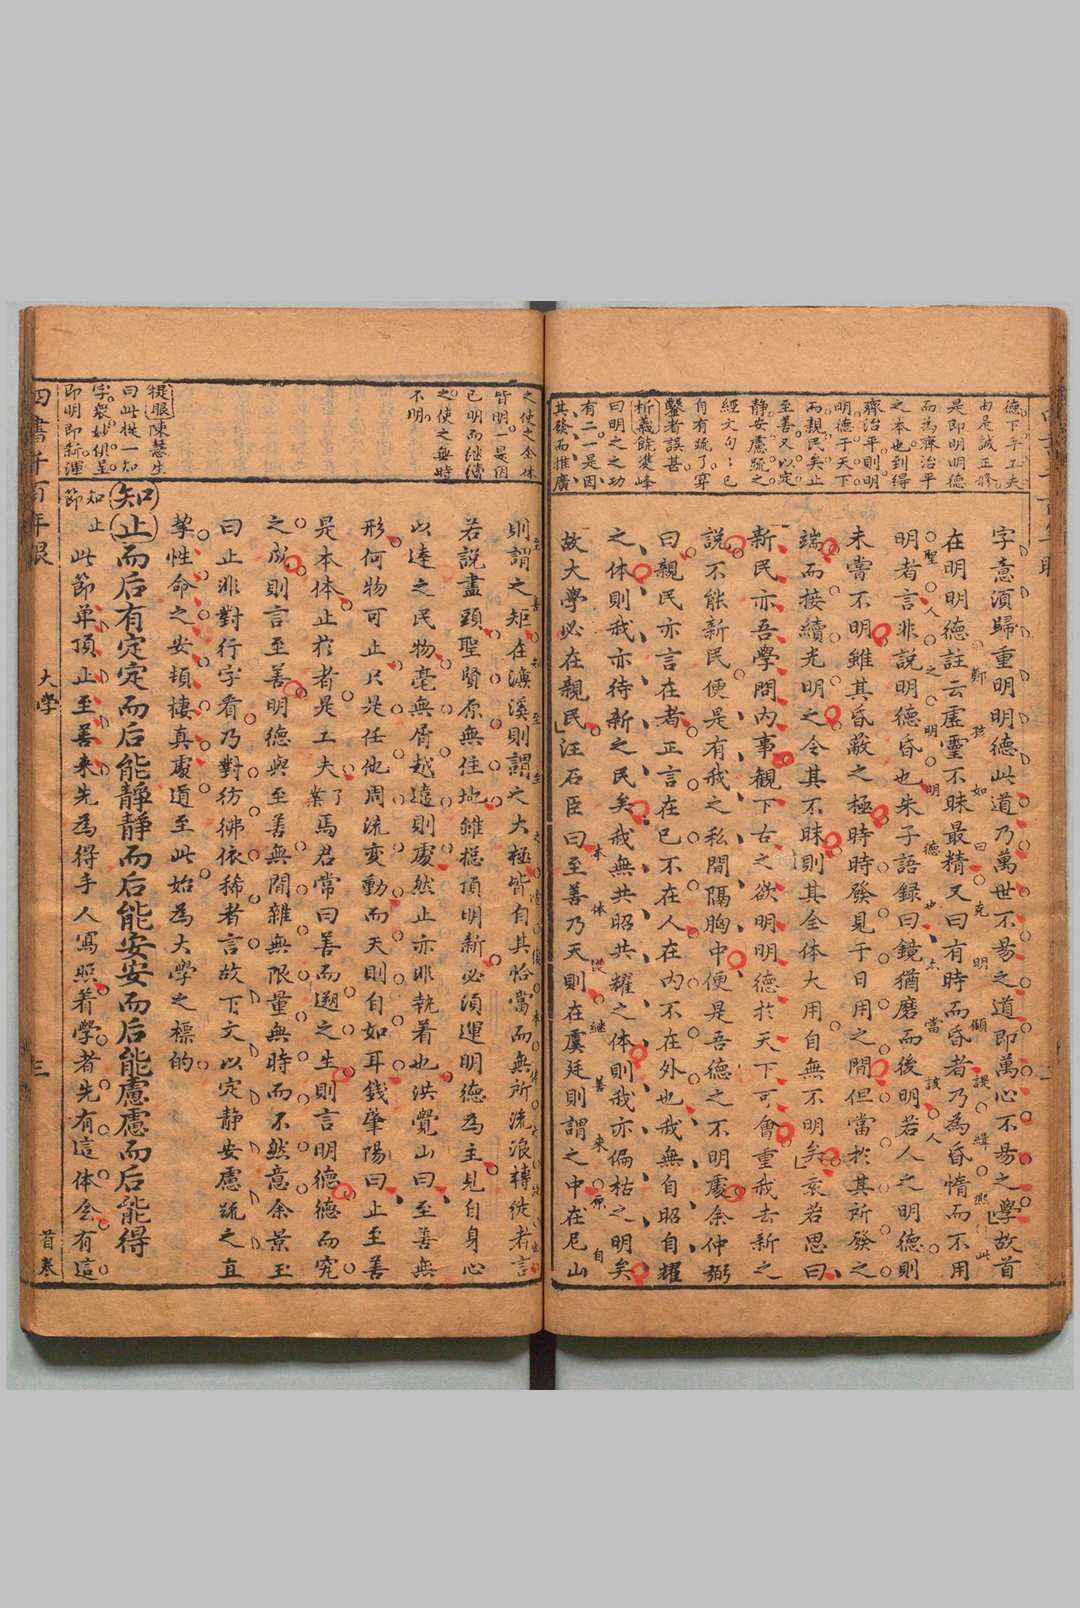 德下手工夫
由是誠正修
是即明明德
而為齊治平
之本也到得
齊治平則明
明德于天下
而親民矣止
至善又以定
靜安慮疏之
經文句句已
自有疏了穿
鑿者誤甚
析義饒雙峰
曰明之之功
有二一是因
其發而推廣
字意須歸重明明德此道乃萬世不易之道即萬心不易之學故首
在明明德註云虛靈不昧最精又曰有時而昏者乃為昏惰而不用
明者言非說明德昏也朱子語録曰鏡猶磨而後明若人之明德則
未嘗不明雖其昏蔽之極時時發見于日用之間但當於其所發之
端而接續光明之令其不昧則其全体大用自無不明矣袁若思曰
新民亦吾學問內事觀下古之欲明明德於天下可會重我去新之
說不能新民便是有我之私間隔胸中便是吾德之不明處余仲弼
曰親民亦言在者正言在已不在人在內不在外也我無自昭自耀
之体則我亦待新之民矣我無共昭共耀之体則我亦偏枯之明矣
故大學必在親民汪石臣曰至善乃天則在虞廷則謂之中在尼山
之使之全体
皆明一是因
已明而継續
之使之無時
不明
則謂之矩在濂溪則謂之大極皆自其恰當而無所流浪轉徙者言
若說盡頭聖賢原無住地雖極頂明新必須運明德為主見自身心
以達之民物毫無屑越遠則處然止亦非執着也洪覺山曰至善無
形何物可止只是任他周流変動而天則自如耳錢肇陽曰止至善
是本体止於者是工夫了業馬君常曰善而遡之生則言明德德而究
之成則言至善明德與至善無間雜無限量無時而不然意余景玉
曰止非對行字看乃對彷彿依稀者言故下文以定靜安慮疏之直
挈性命之安頓棲真處道至此始為大學之標的
知止而后有定定而后能靜靜而后能安安而后能慮慮而后能得
提眼陳慧生
曰此提一知
字衆妙俱呈
即明即新渾
知止
節
此節单頂止至善来先為得手人寫照着學者先有這体念有這
四書千百年眼
大學
三
首巻